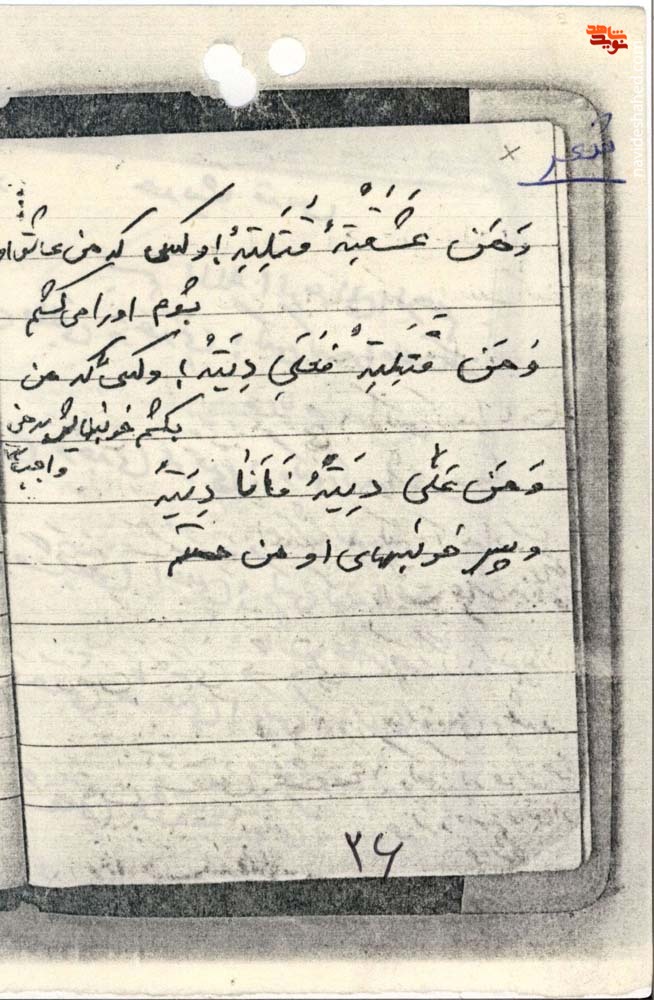 نوید شاهد
navideshahed.com
شعر
×
وَمَن عَشَقتَهُ قَتَلتَهُ ! و کسی که من عاشق او
بشوم او را می کشم
وَمَن قَتَلتَهُ فَعَلَی دِیَتَهُ ! و کسی که من
بکشم خونبهایش بر من
واجب است
وَمَن عَلَی دِیَتَهُ فَأَنَا دِیَتَهُ
و پس خونبهای او من هستم
۲۶